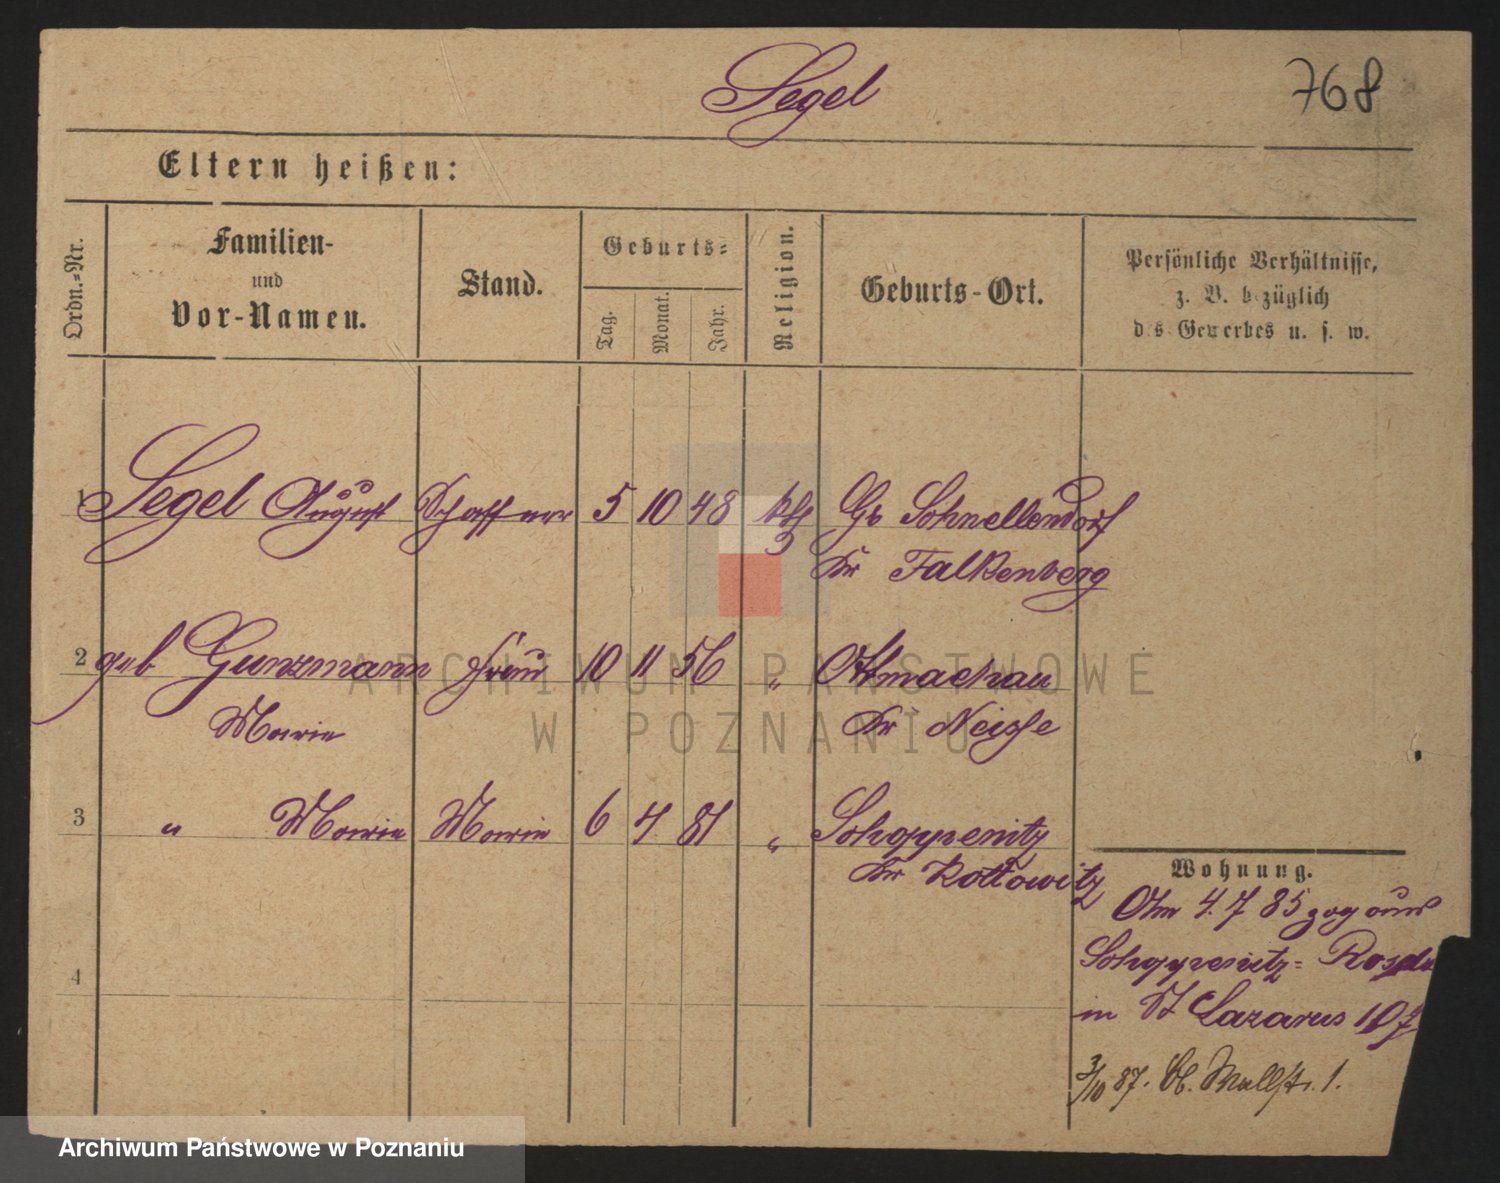 Segel
768
Eltern heißen:
Ordn.-Nr.
Familien-
und
Vor-Namen.
Stand.
Geburts-
Tag.
Monat.
Jahr.
Religion.
Geburts-Ort.
Persönliche Verhältnisse,
z. B. bezüglich
des Gewerbes u. s. w.
1 Segel August Schaffner 5 10 48 kth Gr Schnellendorf
Kr Falkenberg
2 geb Gunzmann Frau 10 11 56 " Ottmachau
Marie Kr Neisse
3 " Marie Marie 6 4 81 " Schoppenitz
Kr Kattowitz
4
Wohnung.
Am 4. 7 85 zog aus
Schoppenitz-
in St Lazarus
3/10 87. Wallstr. 1.
ARCHIWUM PAŃSTWOWE
W POZNANIU
Archiwum Państwowe w Poznaniu